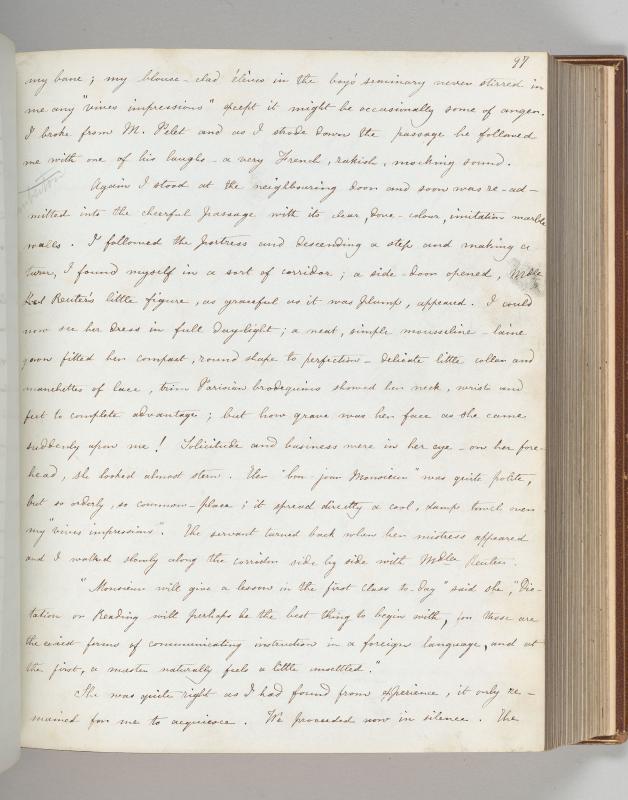 97
my bane ; my blouse-clad élèves in the boy's seminary never stirred in
me any "vives impressions" except it might be occasionally some of anger.
I broke from M. Pelet and as I strode down the passage he followed
me with one of his laughs - a very French, rakish, mocking sound.
Again I stood at the neighbouring door and soon was re-ad-
mitted into the cheerful passage with its clear, dove-colour, imitation marble
walls. I followed the portress and descending a step and making a
turn, I found myself in a sort of corridor ; a side-door opened, Mdlle
Reuter's little figure, as graceful as it was plump, appeared. I could
now see her dress in full daylight ; a neat, simple mousseline-laine
gown fitted her compact, round shape to perfection - delicate little collar and
manchettes of lace, trim Parisian brodequins showed her neck, wrist and
feet to complete advantage ; but how grave was her face as she came
suddenly upon me! Solicitude and business were in her eye - on her fore-
head, she looked almost stern. Her "bon-jour Monsieur" was quite polite,
but so orderly, so common-place ; it spread directly a cool, damp towel over
my "vives impressions". The servant turned back when her mistress appeared
and I walked slowly along the corridor side by side with Mdlle Reuter.
"Monsieur will give a lesson in the first class to-day" said she ; "Dic-
tation or Reading will perhaps be the best thing to begin with, for those are
the easiest forms of communicating instruction in a foreign language, and at
the first, a master naturally feels a little unsettled."
She was quite right as I had found from experience, it only re-
mained for me to acquiesce. We proceeded now in silence. The